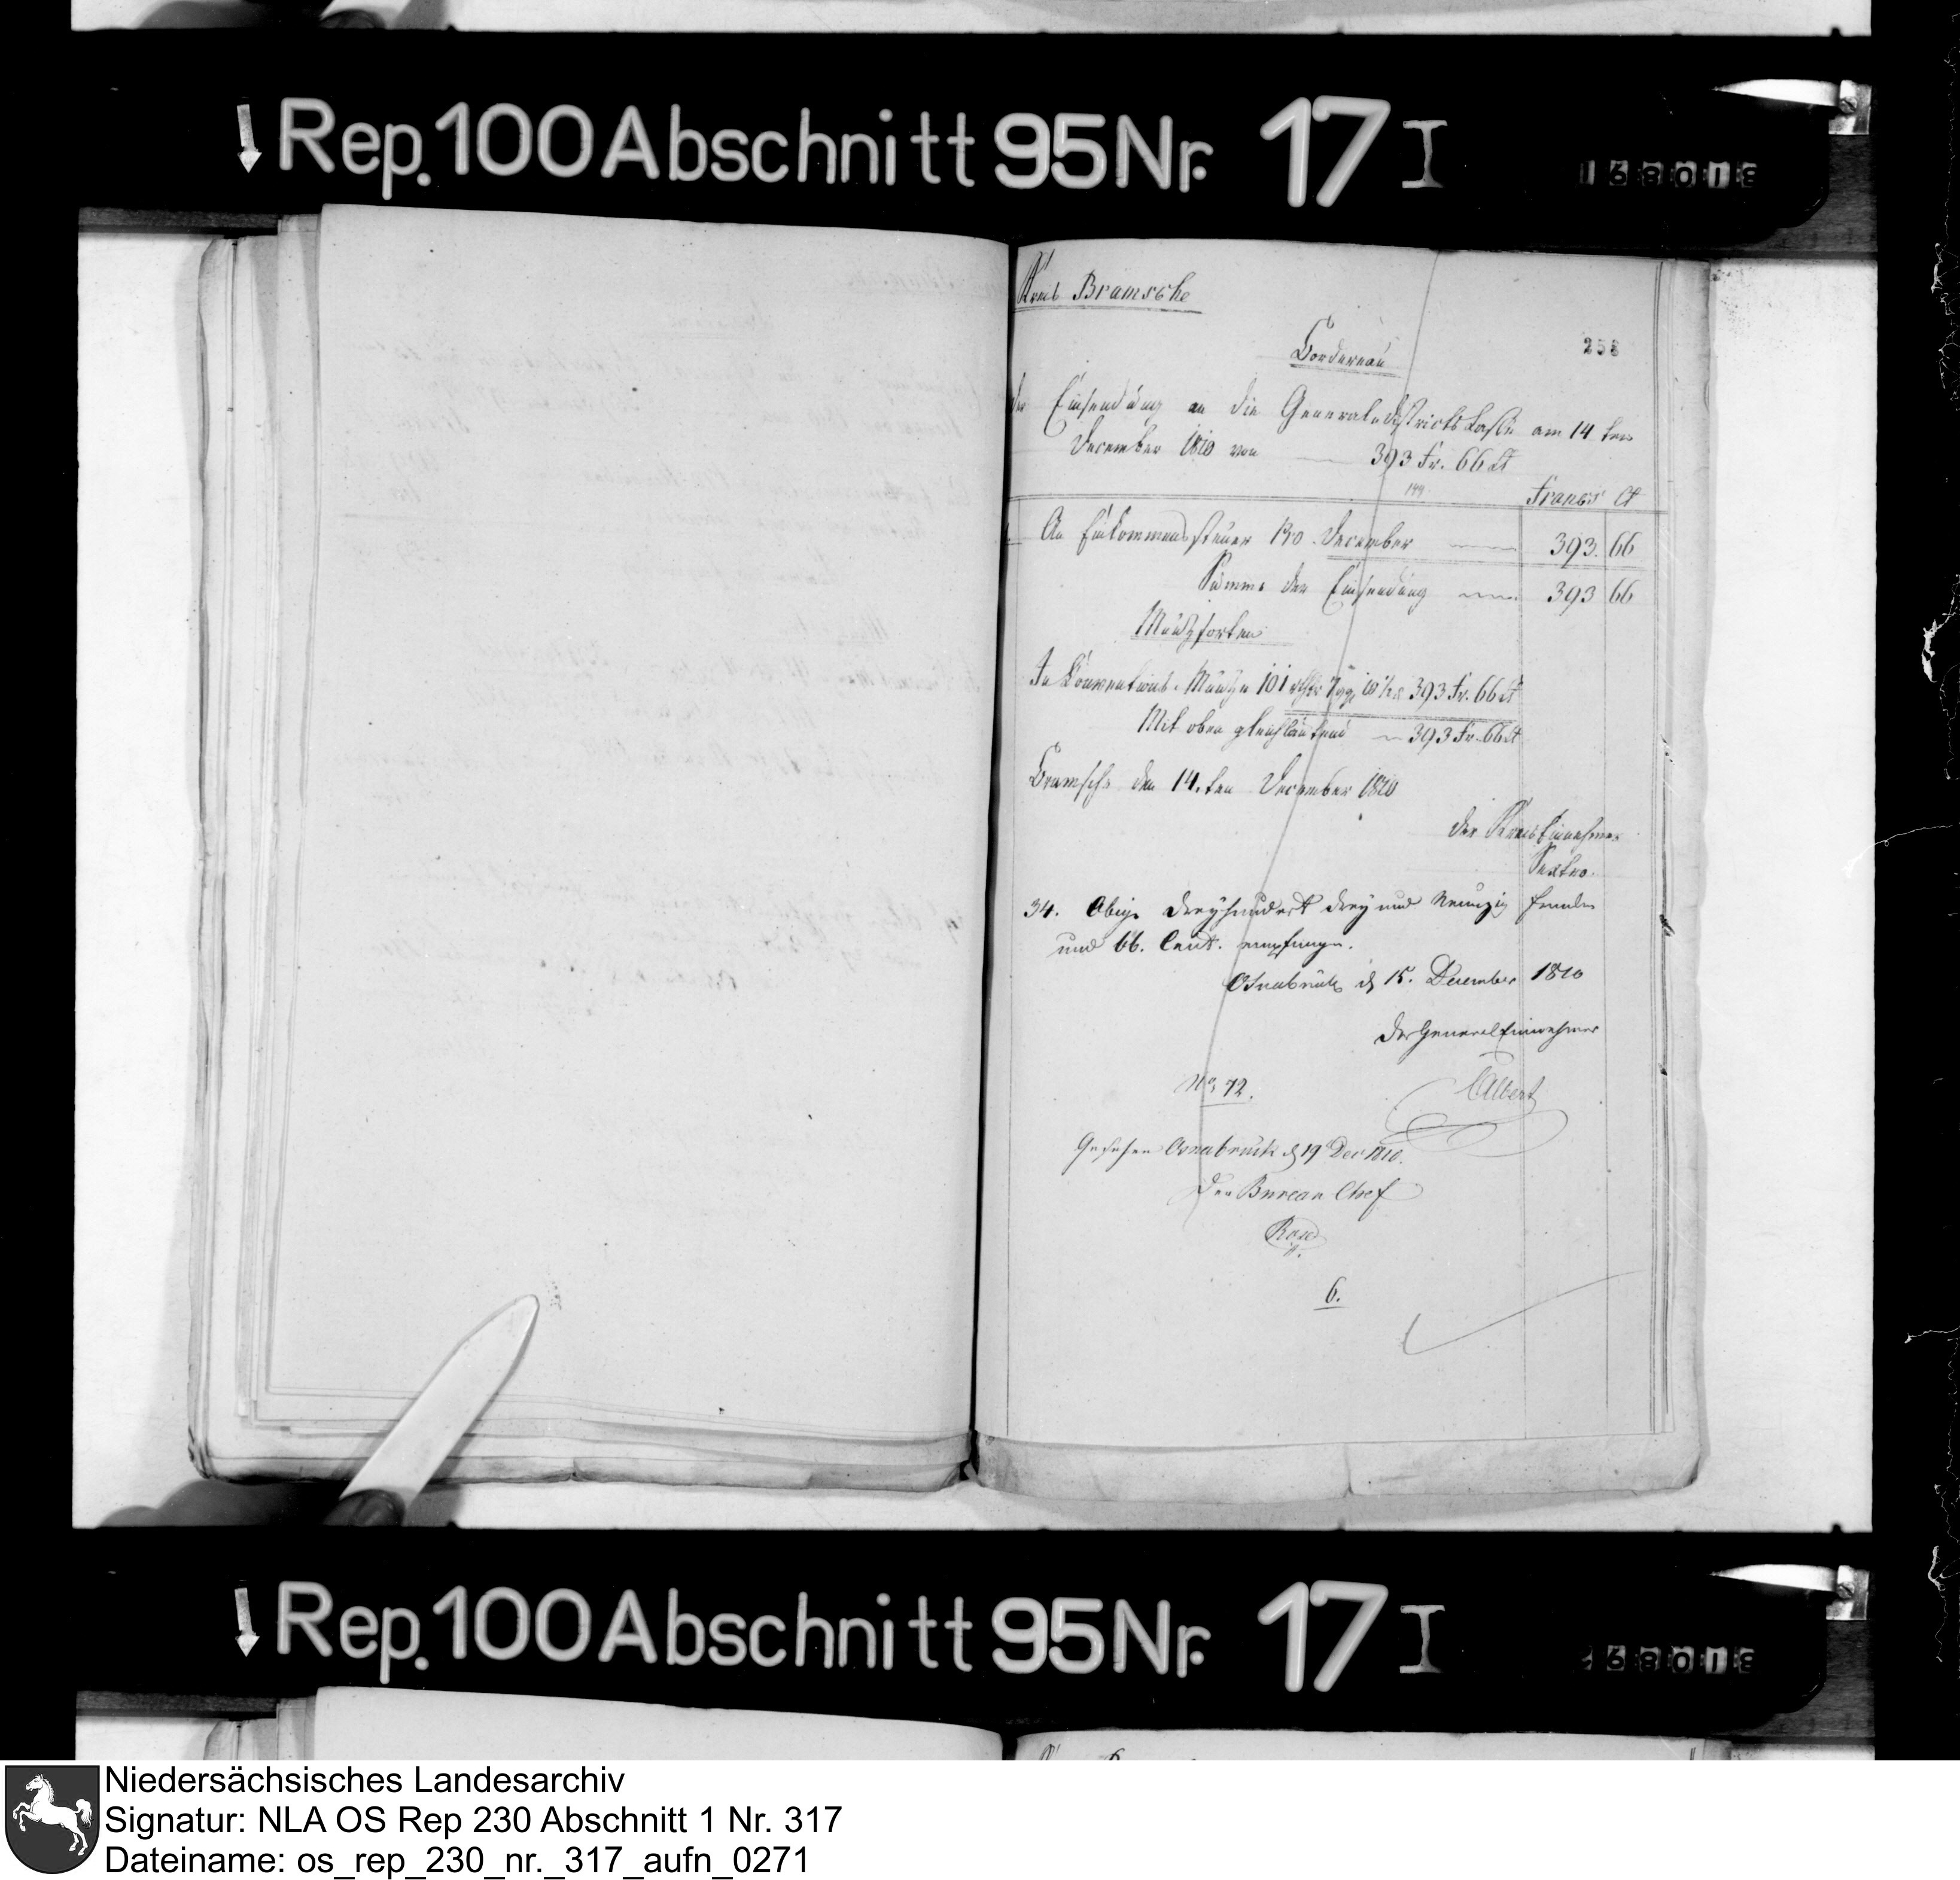 Rep. 100 Abschnitt 95 Nr. 17 I
168013
Kreis Bramsche
258
Bordereau
der Einsendung an die General-Districts Casse am 14ten
December 1810 von 393 Fr. 66 Ct
144
Francs Ct
An Einkommenssteuer pro December 393. 66
Summe der Einsendung 393 66
Münzsorten
In Conventions-Münze 101 393 Fr. 66 Ct
Mit oben gleichlautend 393 Fr. 66 Ct
Bramsche den 14.ten December 1810
der Kreis Einnehmer
Sextro.
34. Obige dreyhundert drey und Neunzig Franken
und 66. Cent. empfangen.
Osnabrück d 15. December 1810
Der General Einnehmer
Albert
No 72.
Gesehen Osnabrück d 19 Dec 1810.
Der Bureau Chef
6.
Rep. 100 Abschnitt 95 Nr. 17 I
68013
Niedersächsisches Landesarchiv
Signatur: NLA OS Rep 230 Abschnitt 1 Nr. 317
Dateiname: os_rep_230_nr._317_aufn_0271